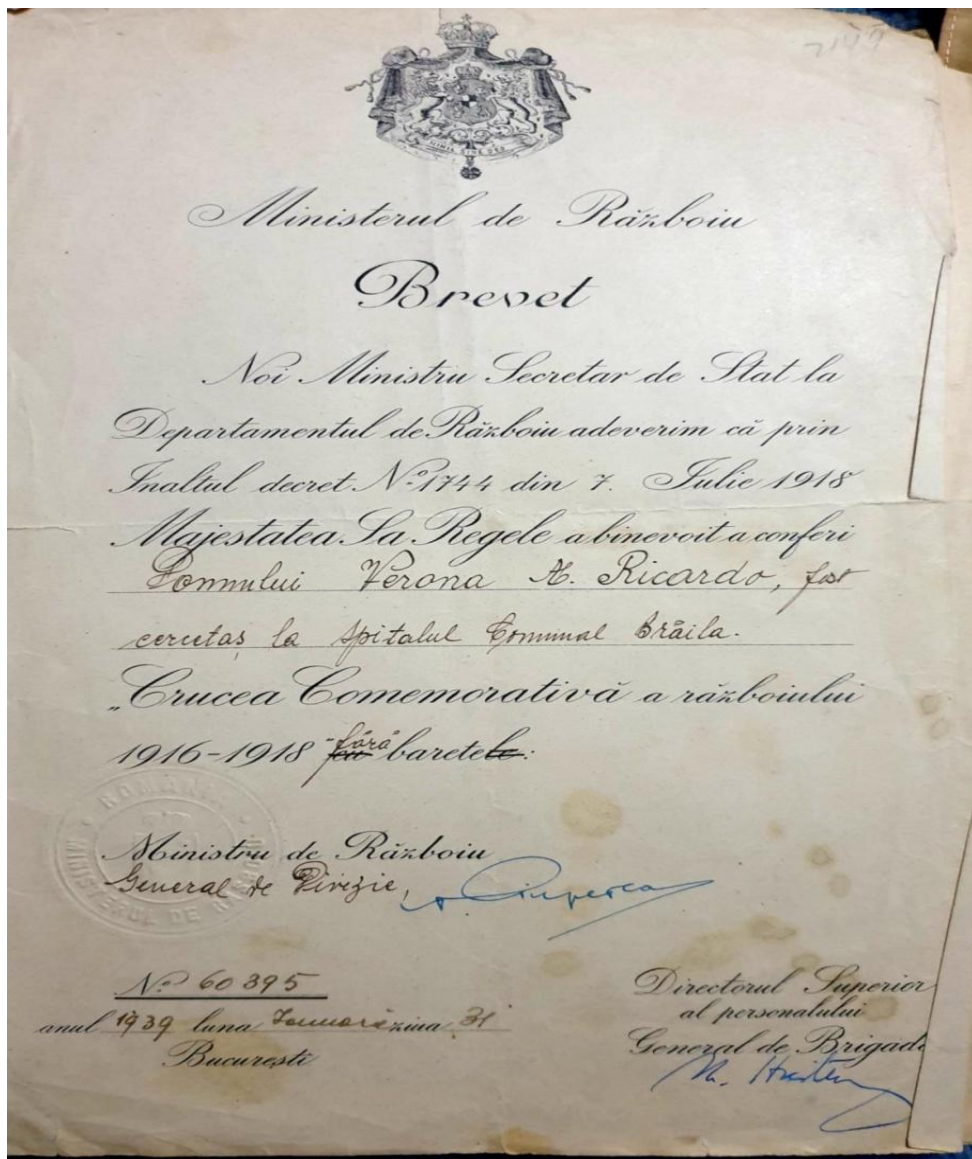 2149
NIHIL SINE DEO
Ministerul de Războiu
Brevet
Noi Ministru Secretar de Stat la
Departamentul de Războiu adeverim că prin
Inaltul decret Nº 1744 din 7. Iulie 1918
Majestatea Sa Regele a binevoit a conferi
Domnului Verona A. Ricardo, fost
cercetaș la spitalul Comunal Brăila.
„Crucea Comemorativă a războiului
1916-1918 "fără" barete:
ROMÂNIA
MINISTERUL DE
Ministru de Războiu
General de Divizie,
Nº 60395
anul 1939 luna Ianuarie ziua 31
Bucureşti
Directorul Superior
al personalului
General de Brigadă